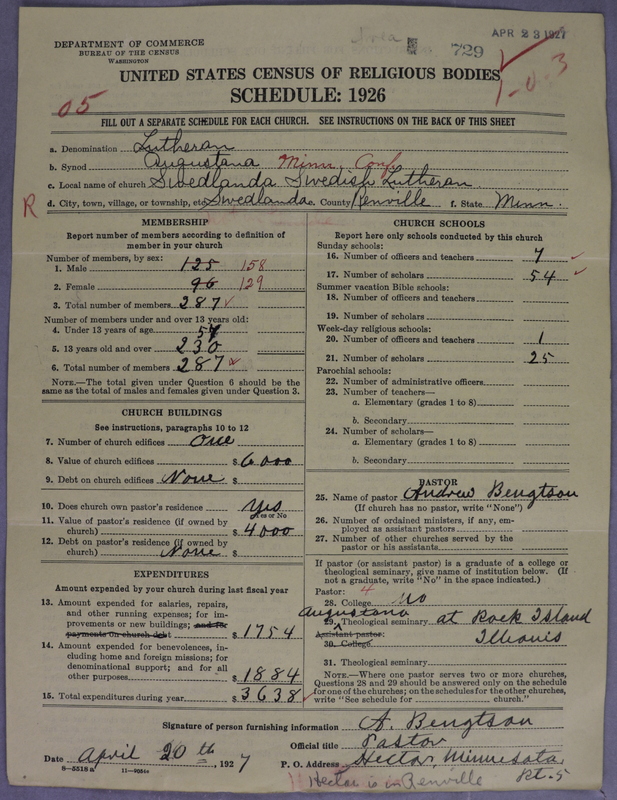 Area
APR 23 1927
729
DEPARTMENT OF COMMERCE
BUREAU OF THE CENSUS
WASHINGTON
UNITED STATES CENSUS OF RELIGIOUS BODIES
SCHEDULE: 1926
05
FILL OUT A SEPARATE SCHEDULE FOR EACH CHURCH. SEE INSTRUCTIONS ON THE BACK OF THIS SHEET
a. Denomination Lutheran
b. Synod Augustana Minn. Conf.
c. Local name of church Swedlanda Swedish Lutheran
R d. City, town, village, or township, etc. Swedlanda e. County Renville f. State Minn.
MEMBERSHIP
Report number of members according to definition of
member in your church
Number of members, by sex:
1. Male 125 158
2. Female 96 129
3. Total number of members 287
Number of members under and over 13 years old:
4. Under 13 years of age 57
5. 13 years old and over 230
6. Total number of members 287
NOTE.—The total given under Question 6 should be the
same as the total of males and females given under Question 3.
CHURCH BUILDINGS
See instructions, paragraphs 10 to 12
7. Number of church edifices One
8. Value of church edifices $ 6000
9. Debt on church edifices None $
10. Does church own pastor's residence Yes
Yes or No
11. Value of pastor's residence (if owned by
church) $ 4000
12. Debt on pastor's residence (if owned by
church) None $
EXPENDITURES
Amount expended by your church during last fiscal year
13. Amount expended for salaries, repairs,
and other running expenses; for im-
provements or new buildings; and for
payments on church debt $ 1754
14. Amount expended for benevolences, in-
cluding home and foreign missions; for
denominational support; and for all
other purposes $ 1884
15. Total expenditures during year $ 3638
CHURCH SCHOOLS
Report here only schools conducted by this church
Sunday schools:
16. Number of officers and teachers 7
17. Number of scholars 54
Summer vacation Bible schools:
18. Number of officers and teachers
19. Number of scholars
Week-day religious schools:
20. Number of officers and teachers 1
21. Number of scholars 25
Parochial schools:
22. Number of administrative officers
23. Number of teachers—
a. Elementary (grades 1 to 8)
b. Secondary
24. Number of scholars—
a. Elementary (grades 1 to 8)
b. Secondary
PASTOR
25. Name of pastor Andrew Bengtson
(If church has no pastor, write "None")
26. Number of ordained ministers, if any, em-
ployed as assistant pastors
27. Number of other churches served by the
pastor or his assistants
If pastor (or assistant pastor) is a graduate of a college or
theological seminary, give name of institution below. (If
not a graduate, write "No" in the space indicated.)
Pastor: 4
28. College no
Augustana
29. Theological seminary at Rock Island
Assistant pastor: Illinois
30. College
31. Theological seminary
NOTE.—Where one pastor serves two or more churches,
Questions 28 and 29 should be answered only on the schedule
for one of the churches; on the schedules for the other churches,
write "See schedule for church."
Signature of person furnishing information A. Bengtson
Official title Pastor
Date April 20th, 1927 P. O. Address Hector, Minnesota
Rt. 5
8—5518a
Hector is in Renville